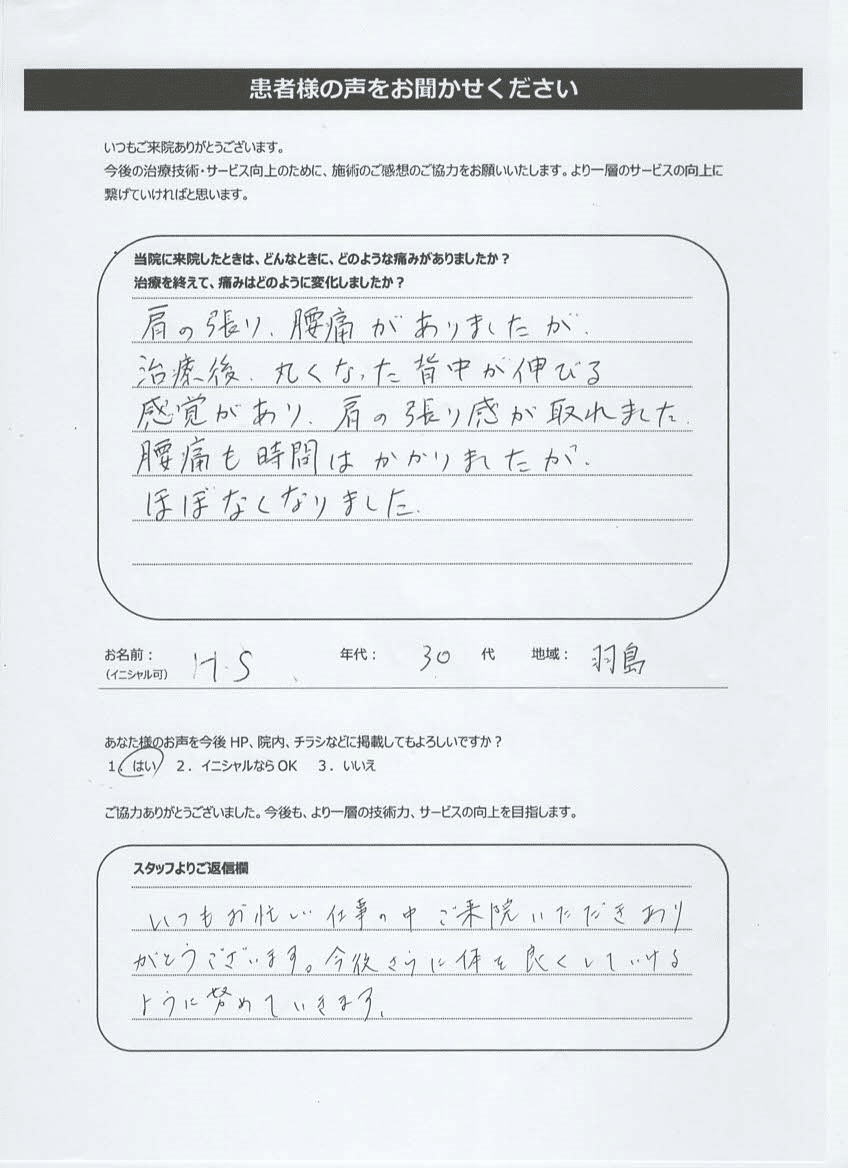 患者様の声をお聞かせください
いつもご来院ありがとうございます。
今後の治療技術・サービス向上のために、施術のご感想のご協力をお願いいたします。より一層のサービスの向上に
繋げていければと思います。
当院に来院したときは、どんなときに、どのような痛みがありましたか？
治療を終えて、痛みはどのように変化しましたか？
肩の張り、腰痛がありましたが、
治療後、丸くなった背中が伸びる
感覚があり、肩の張り感が取れました。
腰痛も時間はかかりましたが、
ほぼなくなりました。
お名前： H.S 年代： 30 代 地域： 羽島
（イニシャル可）
あなた様のお声を今後 HP、院内、チラシなどに掲載してもよろしいですか？
1．はい 2．イニシャルなら OK 3．いいえ
ご協力ありがとうございました。今後も、より一層の技術力、サービスの向上を目指します。
スタッフよりご返信欄
いつもお忙しい仕事の中ご来院いただきあり
がとうございます。今後さらに体を良くしていける
ように努めていきます。